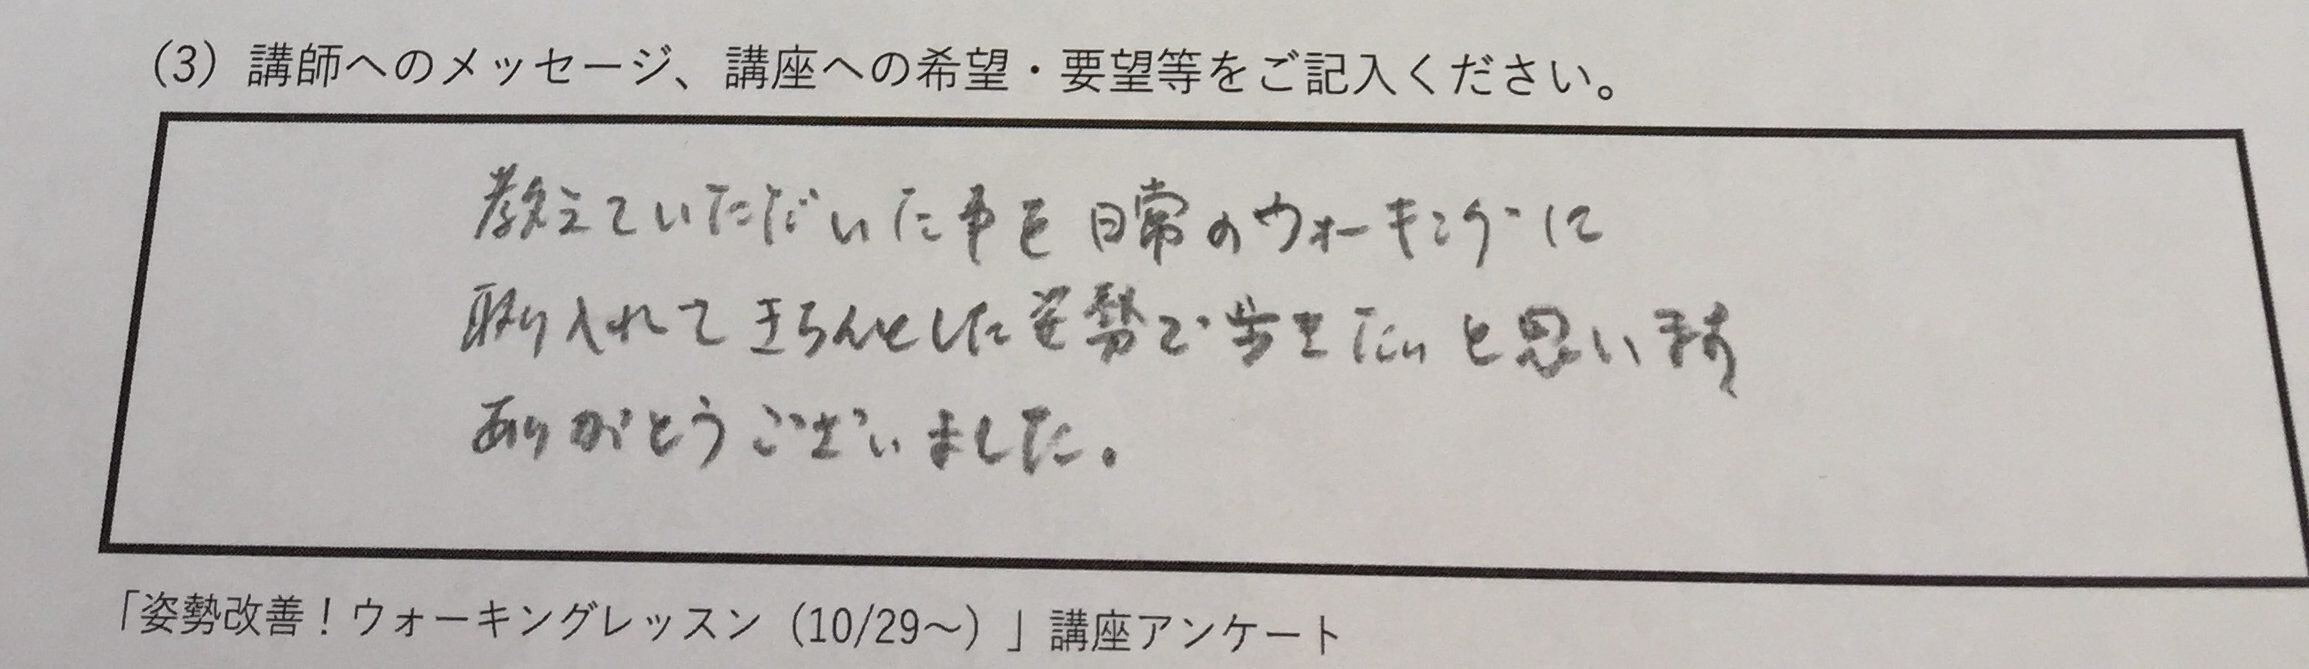 (3) 講師へのメッセージ、講座への希望・要望等をご記入ください。
教えていただいた事を日常のウォーキングに
取り入れてきちんとした姿勢で歩きたいと思います
ありがとうございました。
「姿勢改善！ウォーキングレッスン（10/29～）」講座アンケート